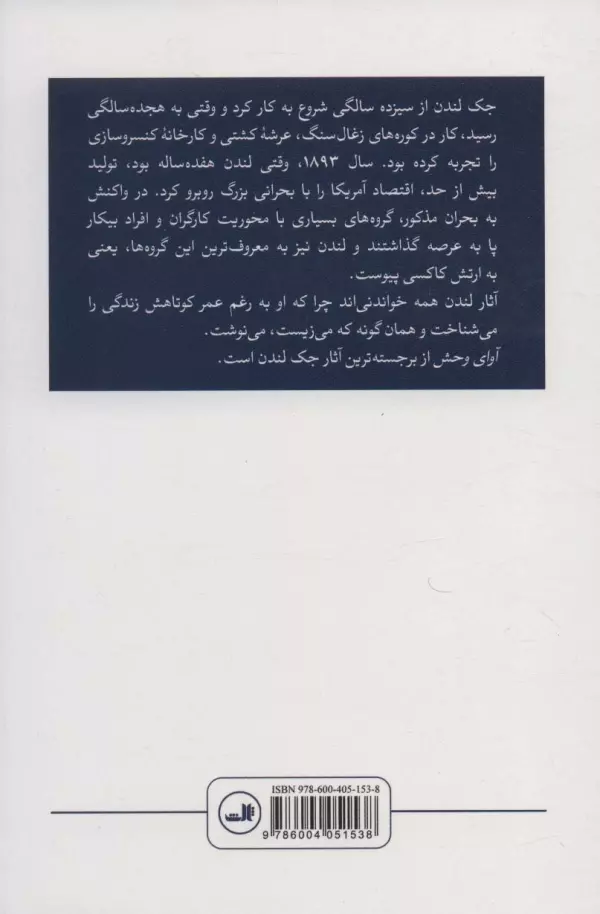 جک لندن از سیزده سالگی شروع به کار کرد و وقتی به هجده‌سالگی
رسید، کار در کوره‌های زغال‌سنگ، عرشهٔ کشتی و کارخانهٔ کنسروسازی
را تجربه کرده بود. سال ۱۸۹۳، وقتی لندن هفده‌ساله بود، تولید
بیش از حد، اقتصاد آمریکا را با بحرانی بزرگ روبرو کرد. در واکنش
به بحران مذکور، گروه‌های بسیاری با محوریت کارگران و افراد بیکار
پا به عرصه گذاشتند و لندن نیز به معروف‌ترین این گروه‌ها، یعنی
به ارتش کاکسی پیوست.
آثار لندن همه خواندنی‌اند چرا که او به رغم عمر کوتاهش زندگی را
می‌شناخت و همان گونه که می‌زیست، می‌نوشت.
آوای وحش از برجسته‌ترین آثار جک لندن است.
ISBN 978-600-405-153-8
ثالث
9 786004 051538